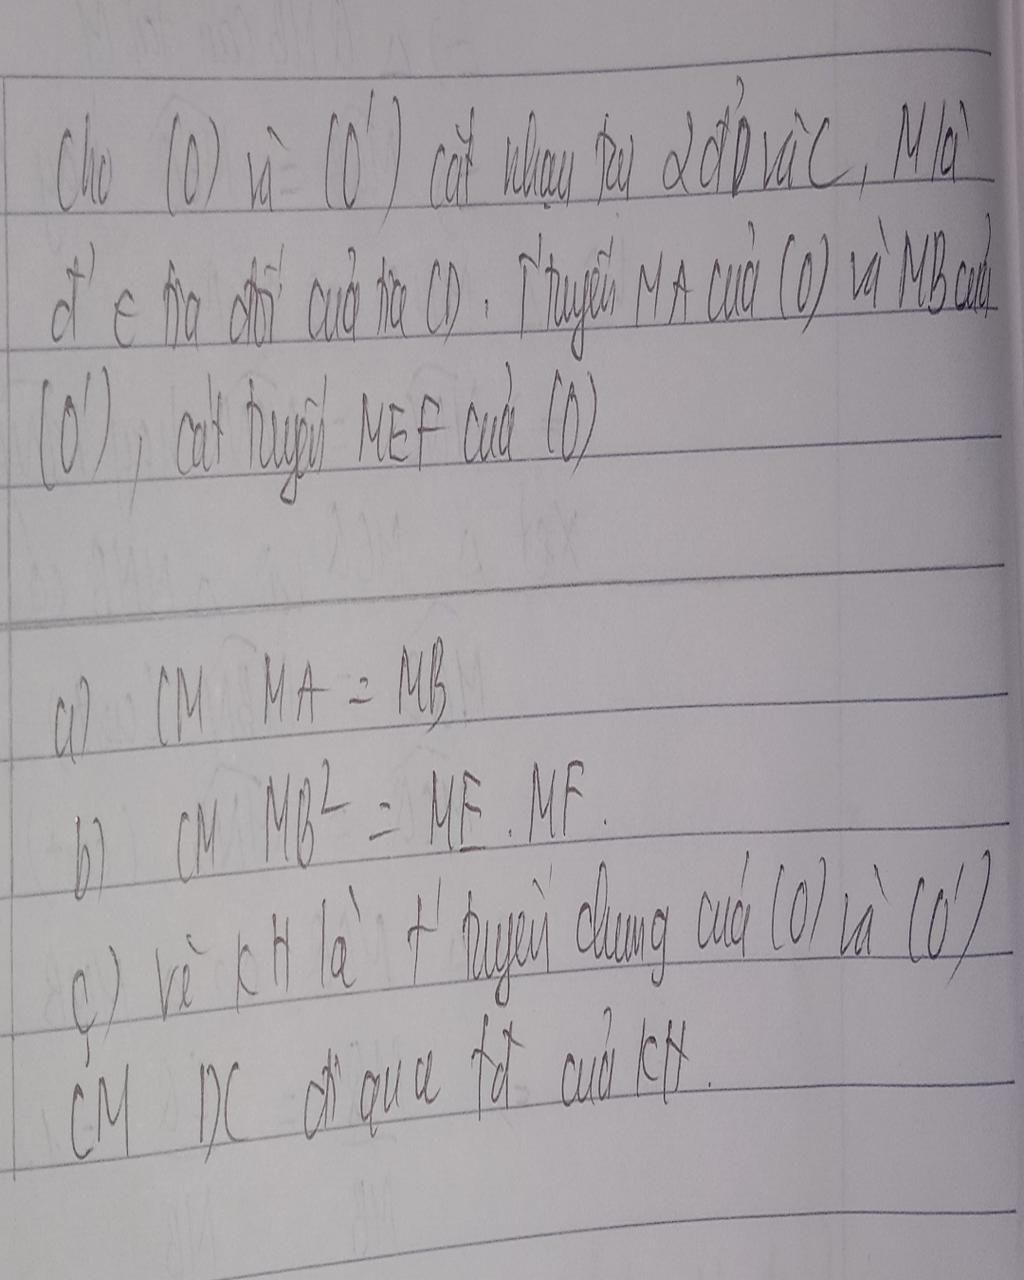 Cho (O) và (O') cắt nhau tại 2 đ' D và C, M là
đ' ∈ tia đối của tia CD. T' tuyến MA của (O) và MB của
(O'), cát tuyến MEF của (O)
a) CM MA = MB
b) CM MB² = ME . MF.
c) vẽ KH là t' tuyến chung của (O) và (O')
CM DC đi qua tđ' của KH.